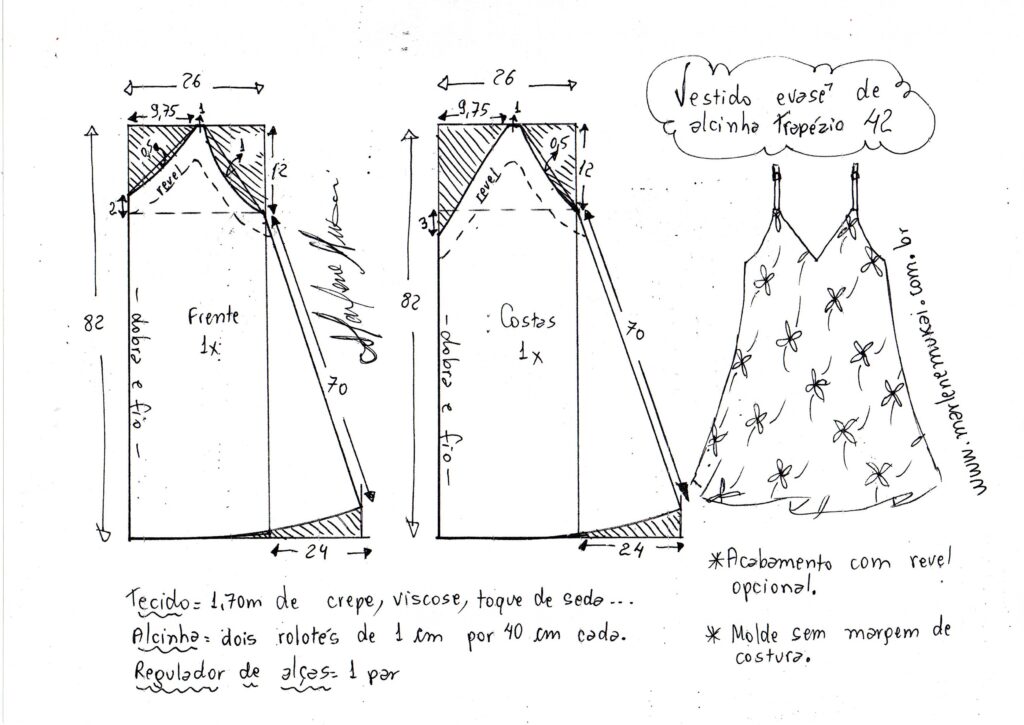 Vestido evasê de
alcinha Trapézio 42
26
9,75
1
0,5
1
12
revel
2
82
Frente
1x
dobra e fio
70
24
Marlene Mukai
26
9,75
1
0,5
12
revel
3
82
Costas
1x
dobra e fio
70
24
www.marlenemukai.com.br
*Acabamento com revel
opcional.
* Molde sem margem de
costura.
Tecido= 1,70m de crepe, viscose, toque de seda...
Alcinha= dois rolotés de 1 cm por 40 cm cada.
Regulador de alças= 1 par